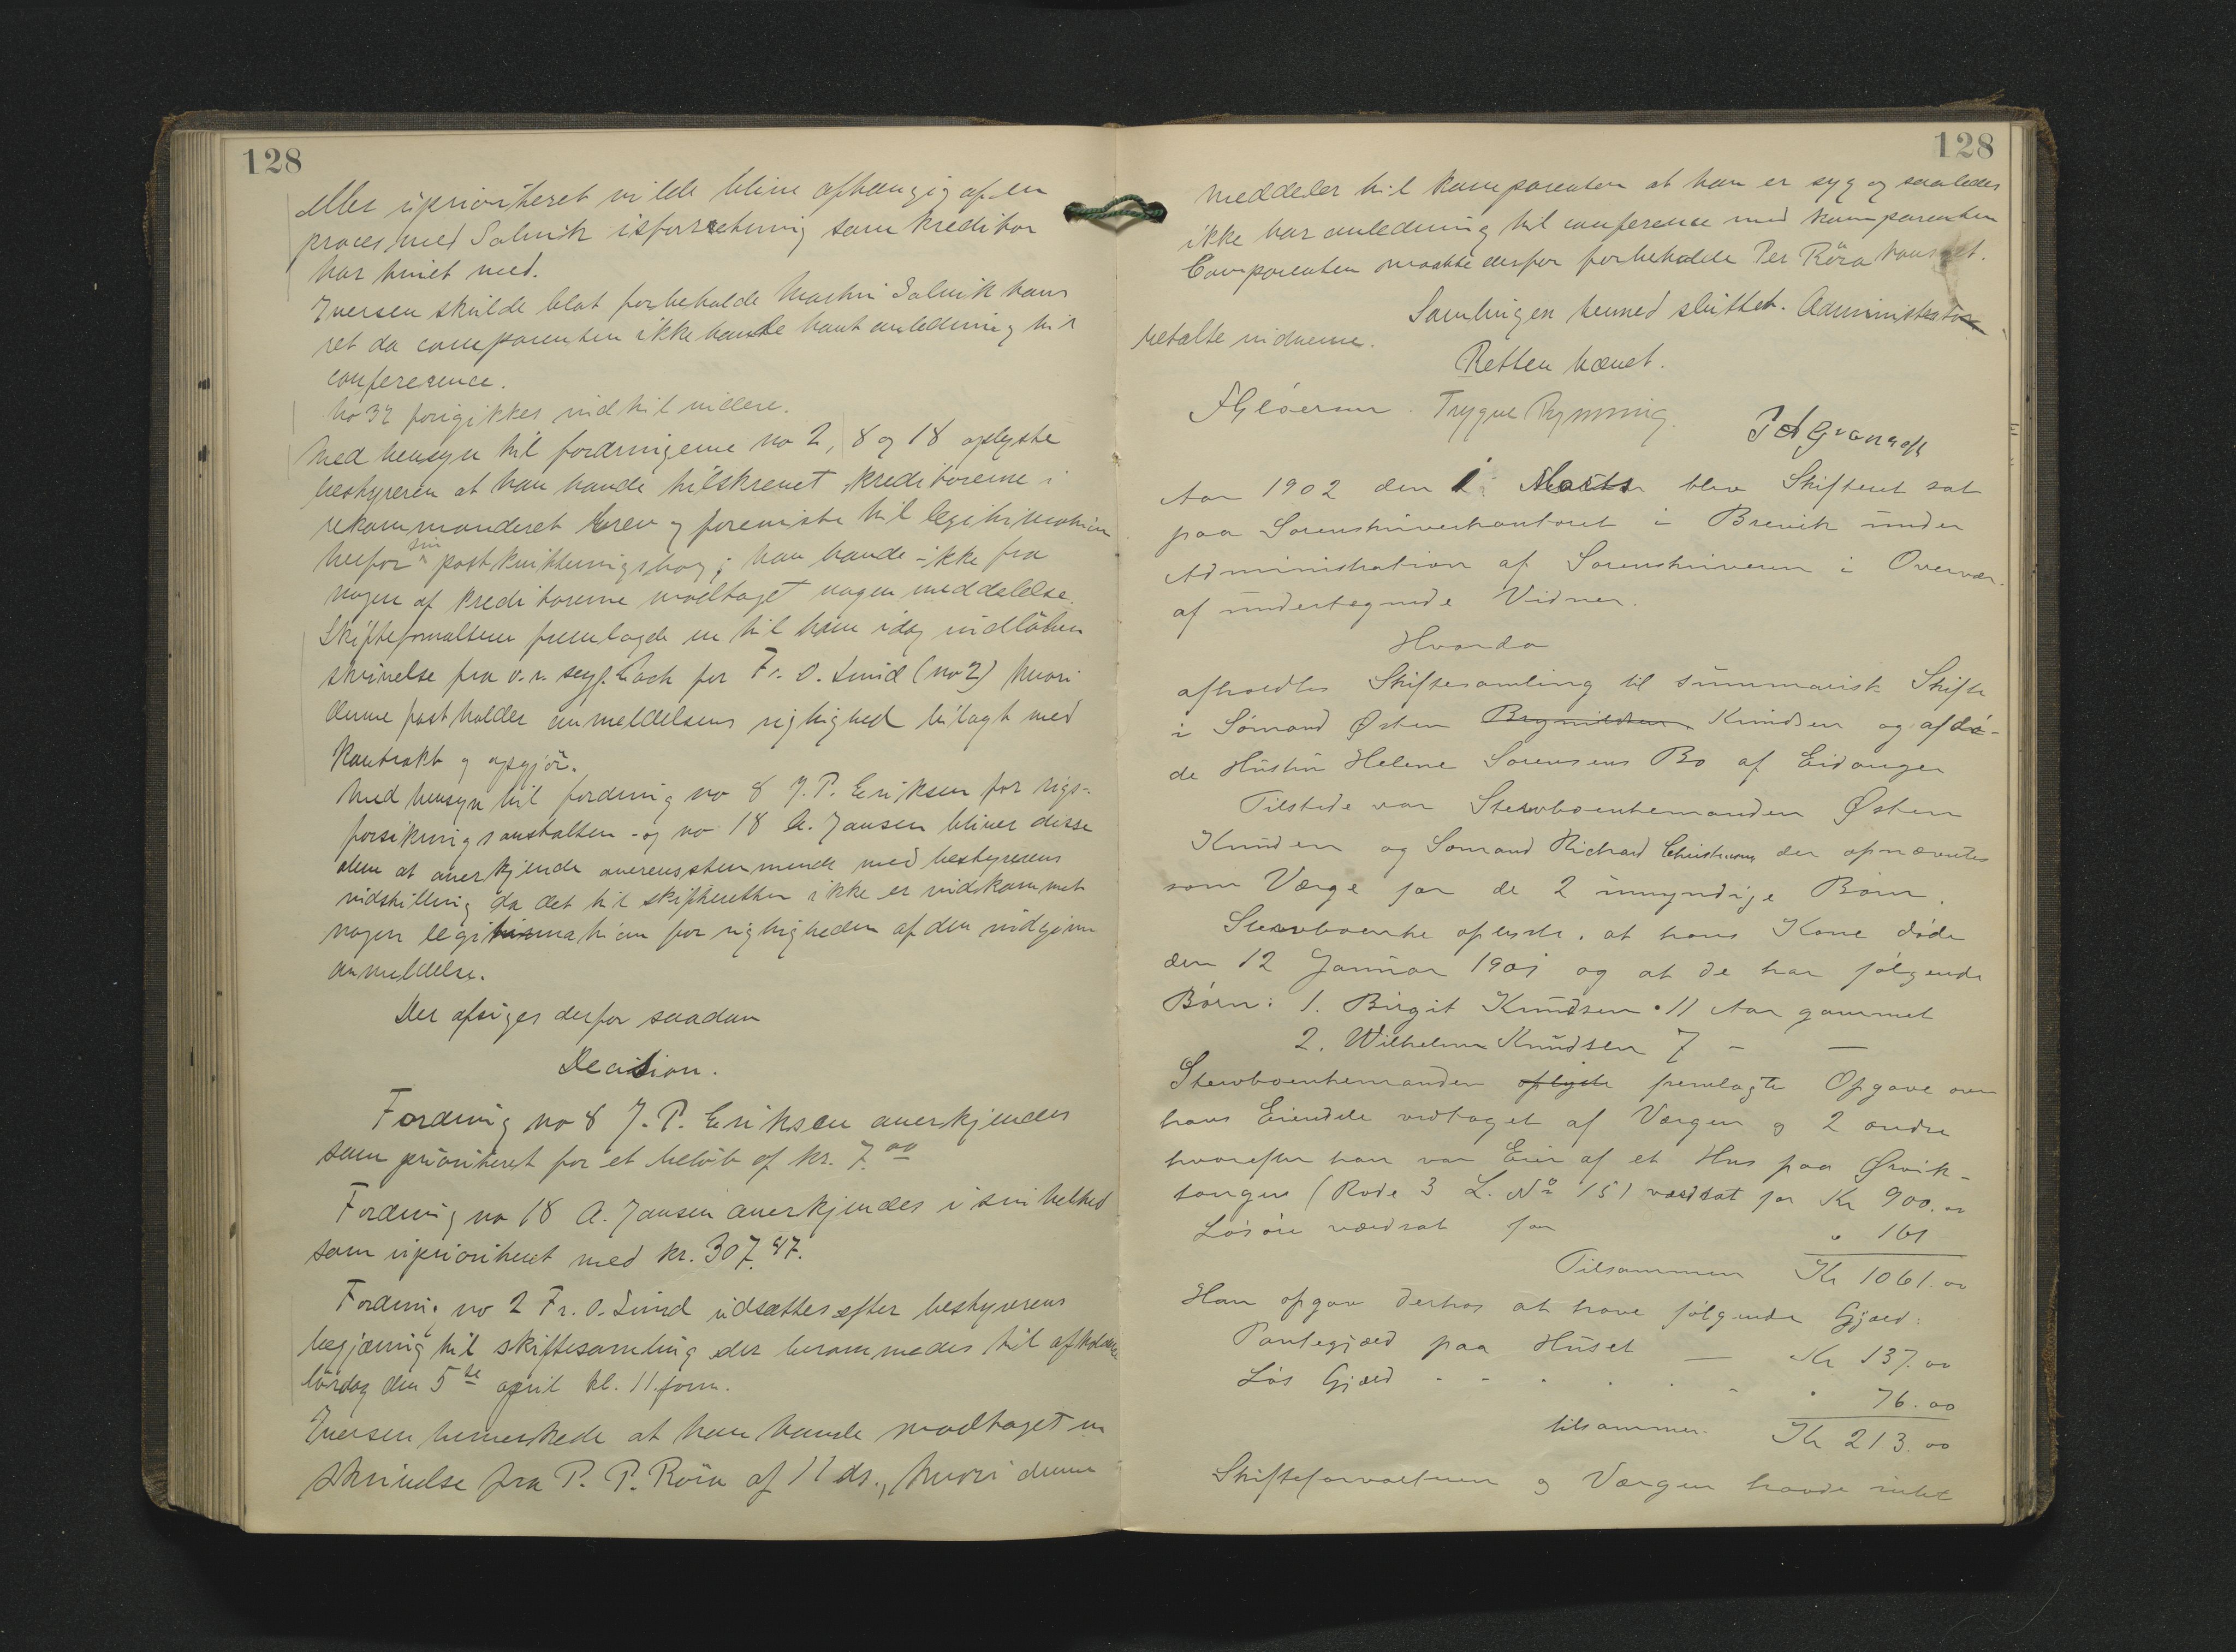 128
eller uprioriteret vilde blive afhængig af en
proces med Solvik isforretning som kreditor
har hvilet med.
Iversen skulde blot forbeholde Martin Solvik hans
ret da comparenten ikke havde havt anledning til
conference.
No 32 forigikkes indtil videre.
Med hensyn til fordringerne no 2, 8 og 18 oplyste
bestyreren at han havde tilskrevet kreditorerne i
rekommanderet brev og foreviste til legitimation
herfor sin postkvitteringsbog; han havde ikke fra
nogen af kreditorerne modtaget nogen meddelelse.
Skifteforvalteren fremlagde en til ham idag indløben
skrivelse fra o.r. sagf. Bach for Fr. O. Lund (no 2) hvori
denne fastholder anmeldelsens rigtighed bilagt med
Kontrakt og opgjør.
Med hensyn til fordring no 8 J. P. Eriksen for rigs-
forsikringsanstalten - og no 18 A. Jansen bliver disse
alene at anerkjende overensstemmende med bestyrerens
indstilling da det til skifteretten ikke er indkommet
nogen legitimation for rigtigheden af den indgivne
anmeldelse.
Der afsiges derfor saadan
Decision.
Fordring no 8 J. P. Eriksen anerkjendes
som prioriteret for et beløb af kr. 7.00
Fordring no 18 A. Jansen anerkjendes i sin helhed
som uprioriteret med kr. 307.47.
Fordring no 2 Fr. O. Lund udsættes efter bestyrerens
begjæring til skiftesamling der berammedes til afholdelse
lørdag den 5te april kl. 11 form.
Iversen bemerkede at han havde modtaget en
skrivelse fra P. P. Röra af 11 ds., hvori denne
128
meddeler til komparenten at han er syg og saaledes
ikke har anledning til conference med komparenten
Comparenten maatte derfor forbeholde Per Röra hans ret.
Samlingen hermed sluttet. Administrator
betalte vidnerne.
Retten hævet.
Trygve Rynning.
Aar 1902 den 1 Marts blev Skifteret sat
paa Sorenskriverkontoret i Brevik under
Administration af Sorenskriveren i Overvær
af undertegnede Vidner.
Hvorda
afholdtes Skiftesamling til summarisk Skifte
i Sømand Østen Brynildsen Knudsen og afdø-
de Hustru Helene Sorensens Bo af Eidanger
Tilstede var Stervboenkemanden Østen
Knudsen og Sømand Richard Christensen der opnævntes
som Værge for de 2 umyndige Børn.
Stervboenke oplyste, at hans Kone døde
den 12 Januar 1901 og at de har følgende
Børn: 1. Birgit Knudsen 11 Aar gammel
2. Wilhelm Knudsen 7 - —
Stervboenkemanden oplyste fremlagte Opgave over
hans Eiendele vedtaget af Værgen og 2 andre
hvorefter han var Eier af et Hus paa Ørvik-
tangen (Rode 3 L. No 151 værdsat for Kr 900.00
Løsøre værdsat for " 161
Tilsammen Kr 1061.00
Han opgav derhos at have følgende Gjæld:
Pantegjæld paa Huset — Kr 137.00
Løs Gjæld - - . . . - " 76.00
tilsammen Kr 213.00
Skifteforvalteren og Værgen havde intet